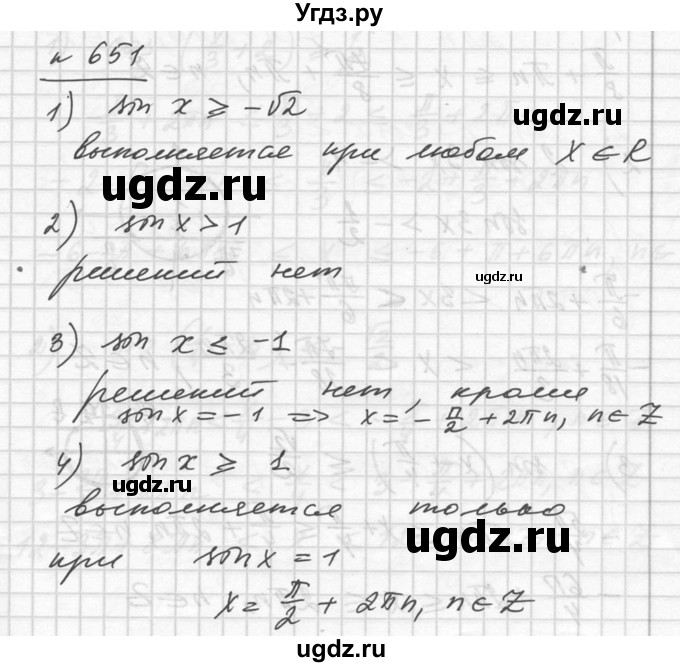 Угдз.ру
n 651
1) sin x ≥ -√2
выполняется при любом x ∈ R
ugdz.ru
ugdz.ru
2) sin x > 1
решений нет
ugdz.ru
3) sin x ≤ -1
решений нет, кроме
sin x = -1 => x = -π/2 + 2πn, n ∈ Z
4) sin x ≥ 1
ugdz.ru
выполняется только
ugdz.ru
при sin x = 1
x = π/2 + 2πn, n ∈ Z
Угдз.ру